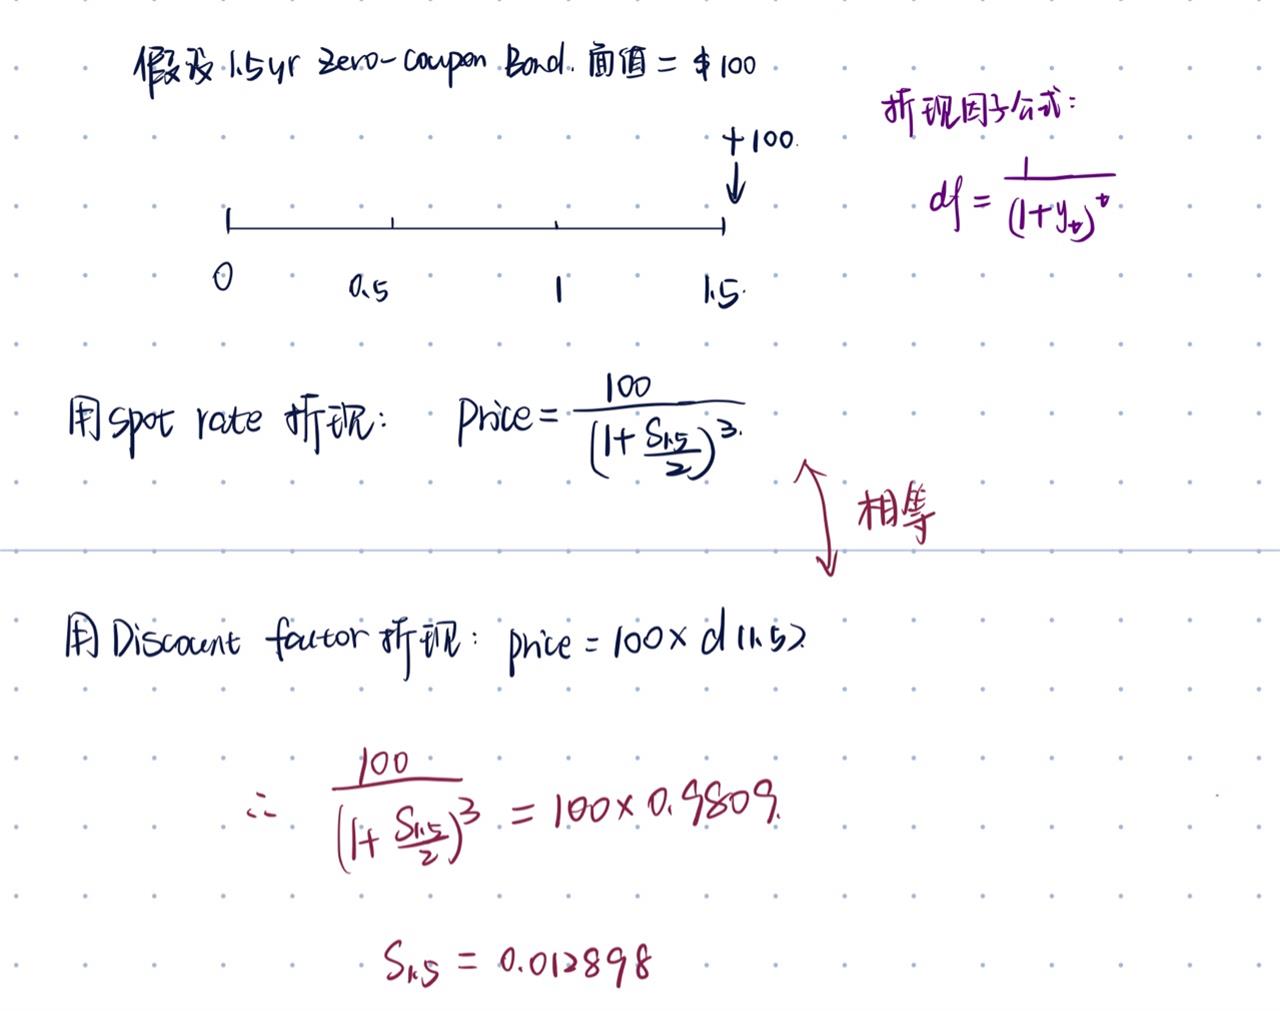 假设 1.5yr Zero-coupon Bond. 面值 = $100
折现因子公式:
df = 1/(1+y_t)^t
+100
0 0.5 1 1.5
用 spot rate 折现: Price = 100/(1+S_1.5/2)^3
相等
用 Discount factor 折现: price = 100 × d(1.5)
∴ 100/(1+S_1.5/2)^3 = 100 × 0.9809
S_1.5 = 0.012898